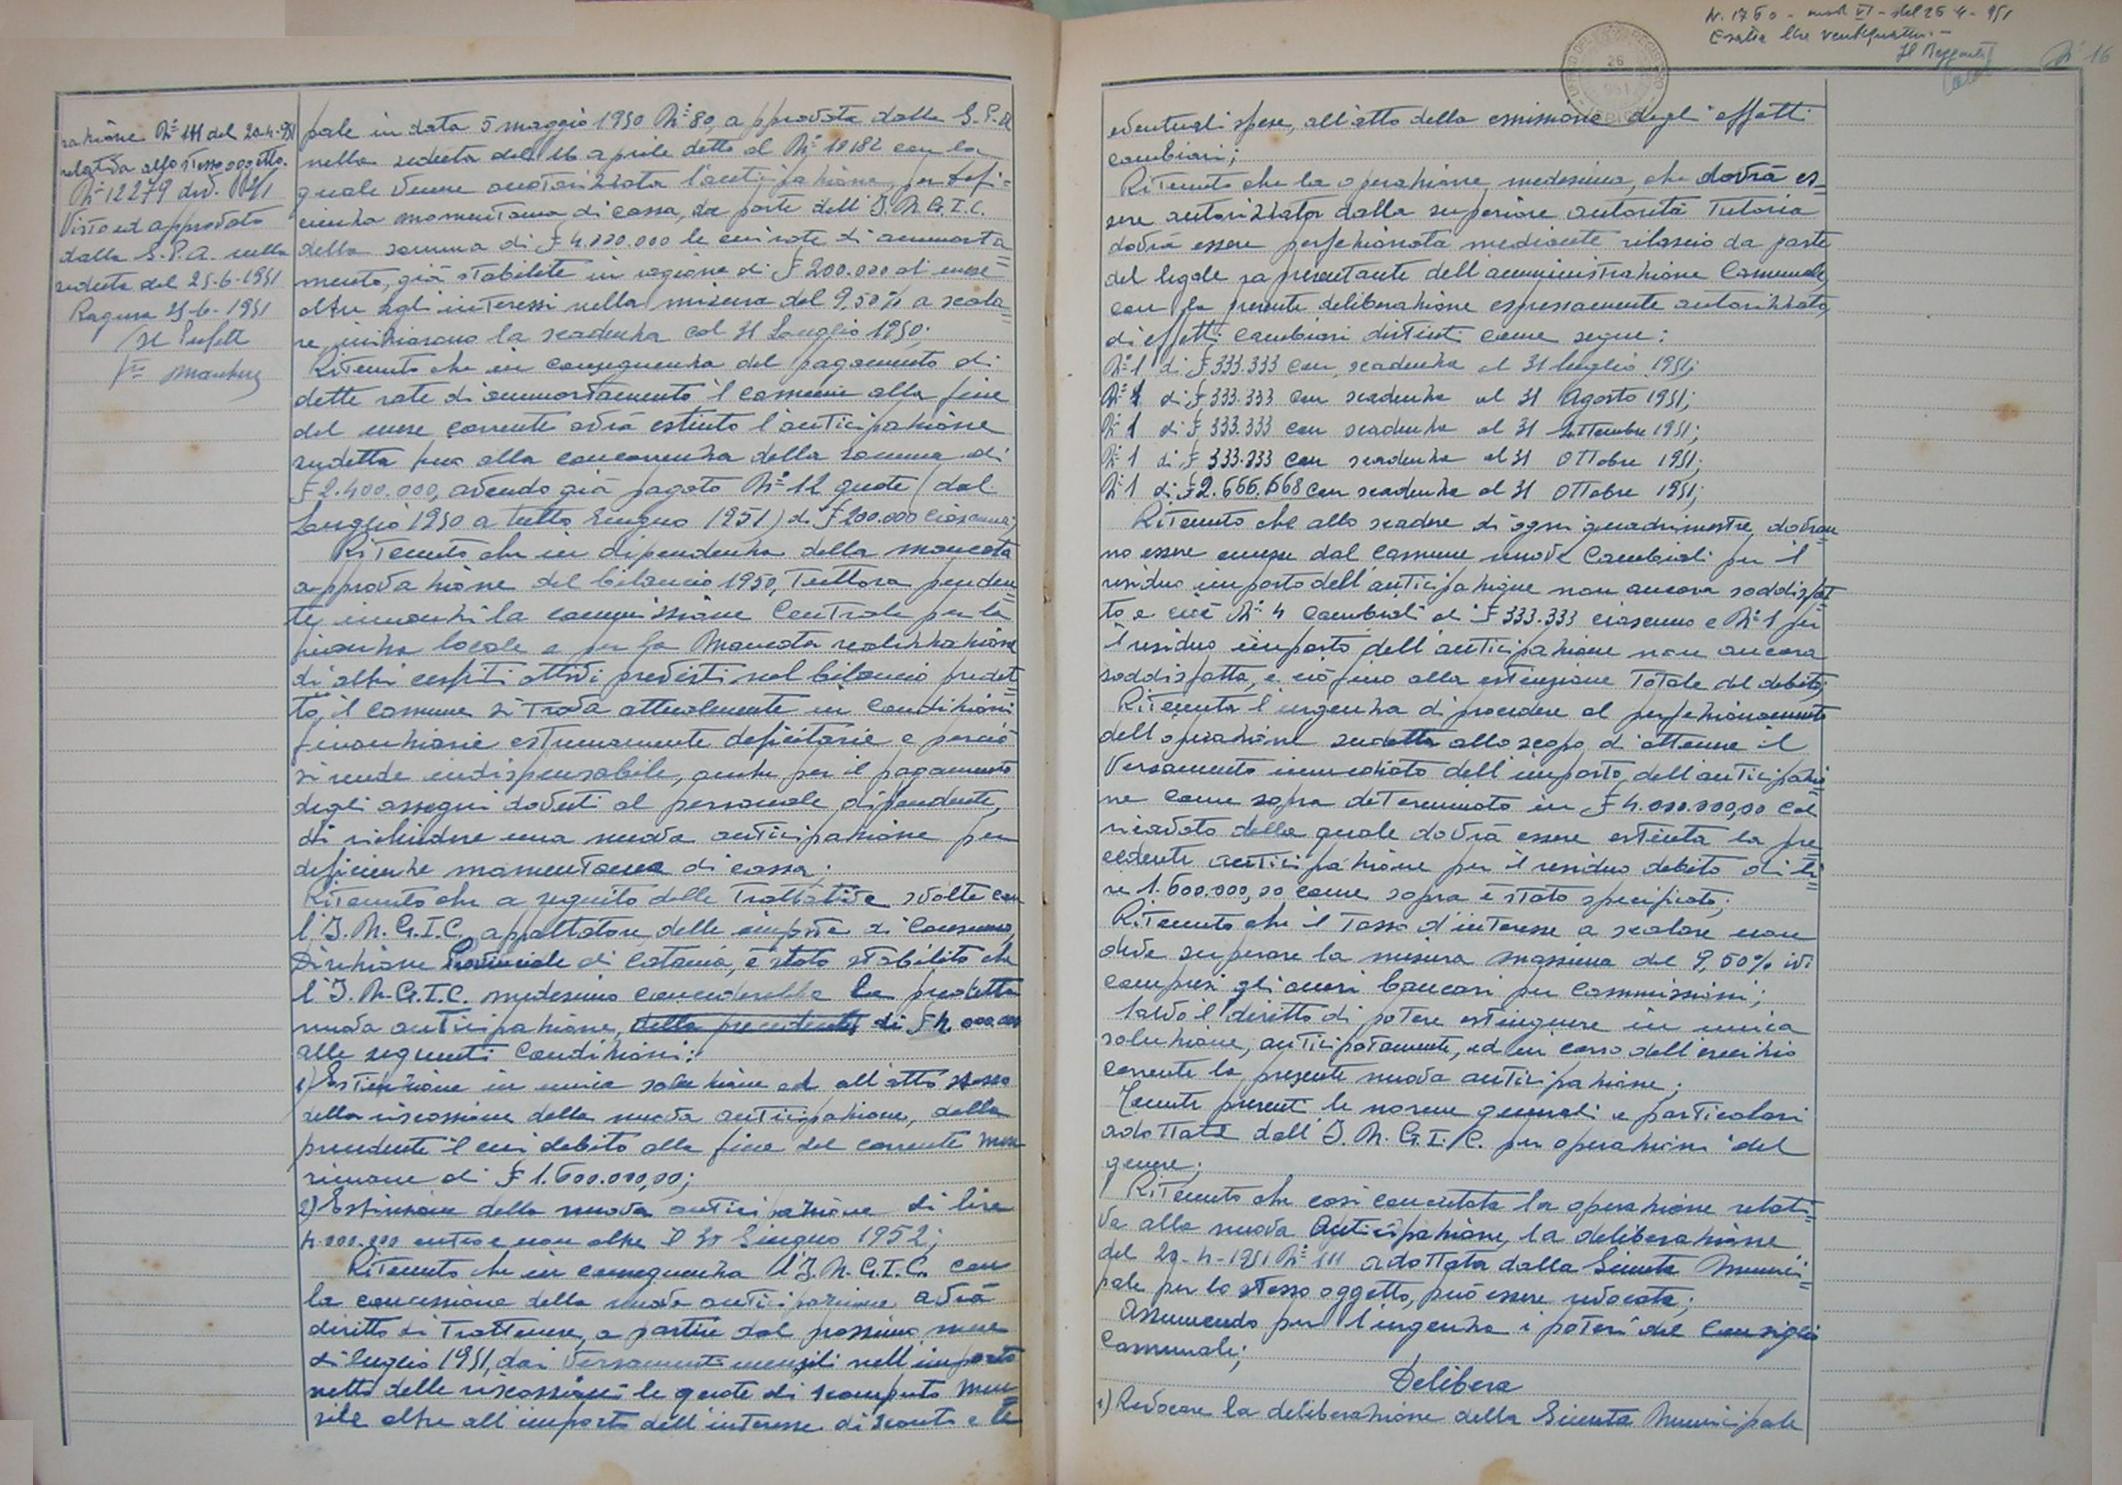 razione N° 111 del 20-4-951
relativa allo stesso oggetto.
N° 12279 div. 2/1
Visto ed approvato
dalla G.P.A. nella
seduta del 25-6-1951
Ragusa 25-6-1951
Il Prefetto
pale in data 5 maggio 1950 N° 80, approvata dalla G.P.A
nella seduta del 16 aprile detto al N° 18182 con la
quale venne autorizzata l'anticipazione, per defi=
cienza momentanea di cassa, da parte dell'I.N.G.I.C.
della somma di £ 4.000.000 le cui rate di ammorta=
mento, già stabilite in ragione di £ 200.000 al mese
oltre agli interessi nella misura del 9,50% a scala=
re, iniziarono la scadenza col 31 Luglio 1950;
Ritenuto che in conseguenza del pagamento di
dette rate di ammortamento il comune alla fine
del mese corrente avrà estinto l'anticipazione
sudetta fino alla concorrenza della somma di
£ 2.400.000, avendo già pagato N° 12 quote (dal
Luglio 1950 a tutto Giugno 1951) di £ 200.000 ciascuna;
Ritenuto che in dipendenza della mancata
approvazione del bilancio 1950, tuttora penden=
te innanzi la commissione Centrale per la
finanza locale e per la mancata realizzazione
di altri cespiti attivi previsti nel bilancio predet=
to, il comune si trova attualmente in condizioni
finanziarie estremamente deficitarie e perciò
si rende indispensabile, anche per il pagamento
degli assegni dovuti al personale dipendente,
di richiedere una nuova anticipazione per
deficienze momentanea di cassa;
Ritenuto che a seguito delle trattative svolte con
l'I.N.G.I.C. appaltatore delle imposte di Consumo,
Direzione Provinciale di Catania, è stato stabilito che
l'I.N.G.I.C. medesimo concederebbe la predetta
nuova anticipazione, della precedente, di £ 4.000.000
alle seguenti Condizioni:
1) Estinzione in unica soluzione ed all'atto stesso
della riscossione della nuova anticipazione, della
precedente il cui debito alla fine del corrente mese
rimane di £ 1.600.000,00;
2) Estinzione della nuova anticipazione di lire
4.000.000 entro e non oltre il 30 Giugno 1952;
Ritenuto che in conseguenza l'I.N.G.I.C. con
la concessione della nuova anticipazione avrà
diritto di trattenere, a partire dal prossimo mese
di luglio 1951, dai versamenti mensili nell'importo
netto delle riscossioni le quote di scomputo men=
sile oltre all'importo dell'interesse di sconto e le
N. 1750 - mod VI - del 26-4-951
Esatte lire ventiquattro.-
Il Reggente
N° 16
26
951
eventuali spese, all'atto della emissione degli effetti
cambiari;
Ritenuto che la operazione medesima, che dovrà es=
sere autorizzata dalla superiore autorità Tutoria
dovrà essere perfezionata mediante rilascio da parte
del legale rapresentante dell'amministrazione Comunale,
con la presente deliberazione espressamente autorizzato,
di effetti cambiari distinti come segue:
N° 1 di £ 333.333 con scadenza al 31 luglio 1951;
N° 1 di £ 333.333 con scadenza al 31 Agosto 1951;
N° 1 di £ 333.333 con scadenza al 31 Settembre 1951;
N° 1 di £ 333.333 con scadenza al 31 Ottobre 1951;
N° 1 di £ 2.666.668 con scadenza al 31 Ottobre 1951;
Ritenuto che allo scadere di ogni quadrimestre, dovran=
no essere emesse dal Comune nuove Cambiali per il
residuo importo dell'anticipazione non ancora soddisfat=
to e cioè N° 4 Cambiali di £ 333.333 ciascuno e N° 1 per
il residuo importo dell'anticipazione non ancora
soddisfatta, e ciò fino alla estinzione Totale del debito;
Ritenuta l'urgenza di procedere al perfezionamento
dell'operazione sudetta allo scopo di ottenere il
Versamento immediato dell'importo dell'anticipazio=
ne come sopra determinato in £ 4.000.000,00 col
ricavato della quale dovrà essere estinta la pre=
cedente anticipazione per il residuo debito di li=
re 1.600.000,00 come sopra è stato specificato;
Ritenuto che il Tasso d'interesse a scalare non
deve superare la misura massima del 9,50% ivi
compresi gli oneri bancari per commissioni;
Salvo il diritto di potere estinguere in unica
soluzione, anticipatamente, ed in corso dell'esercizio
corrente la presente nuova anticipazione;
Tenute presenti le norme generali e particolari
adottate dall'I.N.G.I.C. per operazioni del
genere;
Ritenuto che così concretata la operazione relati=
va alla nuova Anticipazione, la deliberazione
del 20-4-1951 N° 111 adottata dalla Giunta Munici=
pale per lo stesso oggetto, può essere revocata;
Assumendo per l'urgenza i poteri del Consiglio
Comunale;
Delibera
1) Revocare la deliberazione della Giunta Municipale